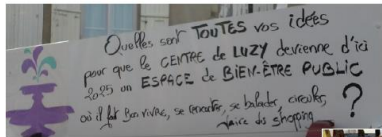 Quelles sont TOUTES vos idées
pour que le CENTRE de LUZY devienne d'ici
2025 un ESPACE de BIEN-ÊTRE PUBLIC
où il fait Bon vivre, se rencontrer, se balader, circuler,
faire du shopping ?